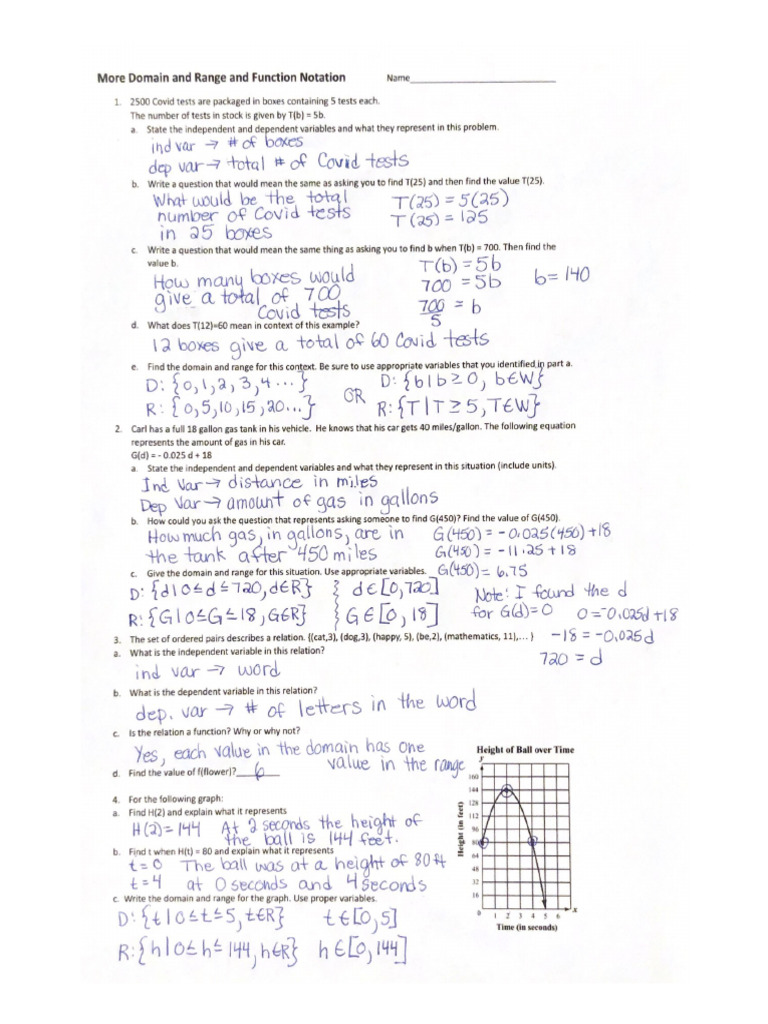 More Domain and Range and Function Notation Name
1. 2500 Covid tests are packaged in boxes containing 5 tests each.
The number of tests in stock is given by T(b) = 5b.
a. State the independent and dependent variables and what they represent in this problem.
ind var → # of boxes
dep var → total # of Covid tests
b. Write a question that would mean the same as asking you to find T(25) and then find the value T(25).
What would be the total
number of Covid tests
in 25 boxes
T(25) = 5(25)
T(25) = 125
c. Write a question that would mean the same thing as asking you to find b when T(b) = 700. Then find the
value b.
How many boxes would
give a total of 700
Covid tests
T(b) = 5b
700 = 5b
700/5 = b
b = 140
d. What does T(12)=60 mean in context of this example?
12 boxes give a total of 60 Covid tests
e. Find the domain and range for this context. Be sure to use appropriate variables that you identified in part a.
D: {0,1,2,3,4...}
R: {0,5,10,15,20...}
OR
D: {b|b≥0, b∈W}
R: {T|T≥5, T∈W}
2. Carl has a full 18 gallon gas tank in his vehicle. He knows that his car gets 40 miles/gallon. The following equation
represents the amount of gas in his car.
G(d) = - 0.025 d + 18
a. State the independent and dependent variables and what they represent in this situation (include units).
Ind Var → distance in miles
Dep Var → amount of gas in gallons
b. How could you ask the question that represents asking someone to find G(450)? Find the value of G(450).
How much gas, in gallons, are in
the tank after 450 miles
G(450) = -0.025(450)+18
G(450) = -11.25 + 18
G(450) = 6.75
c. Give the domain and range for this situation. Use appropriate variables.
D: {d|0≤d≤720, d∈R} } d∈[0,720]
R: {G|0≤G≤18, G∈R} } G∈[0,18]
Note: I found the d
for G(d)=0
0=-0.025d+18
-18 = -0.025d
720 = d
3. The set of ordered pairs describes a relation. {(cat,3), (dog,3), (happy, 5), (be,2), (mathematics, 11),... }
a. What is the independent variable in this relation?
ind var → word
b. What is the dependent variable in this relation?
dep. var → # of letters in the word
c. Is the relation a function? Why or why not?
Yes, each value in the domain has one
value in the range
d. Find the value of f(flower)? 6
4. For the following graph:
a. Find H(2) and explain what it represents
H(2)=144 At 2 seconds the height of
the ball is 144 feet.
b. Find t when H(t) = 80 and explain what it represents
t=0 The ball was at a height of 80 ft
t=4 at 0 seconds and 4 seconds
c. Write the domain and range for the graph. Use proper variables.
D: {t|0≤t≤5, t∈R} t∈[0,5]
R: {h|0≤h≤144, h∈R} h∈[0,144]
Height of Ball over Time
y
160
144
128
112
96
80
64
48
32
16
Height (in feet)
0 1 2 3 4 5 6 x
Time (in seconds)